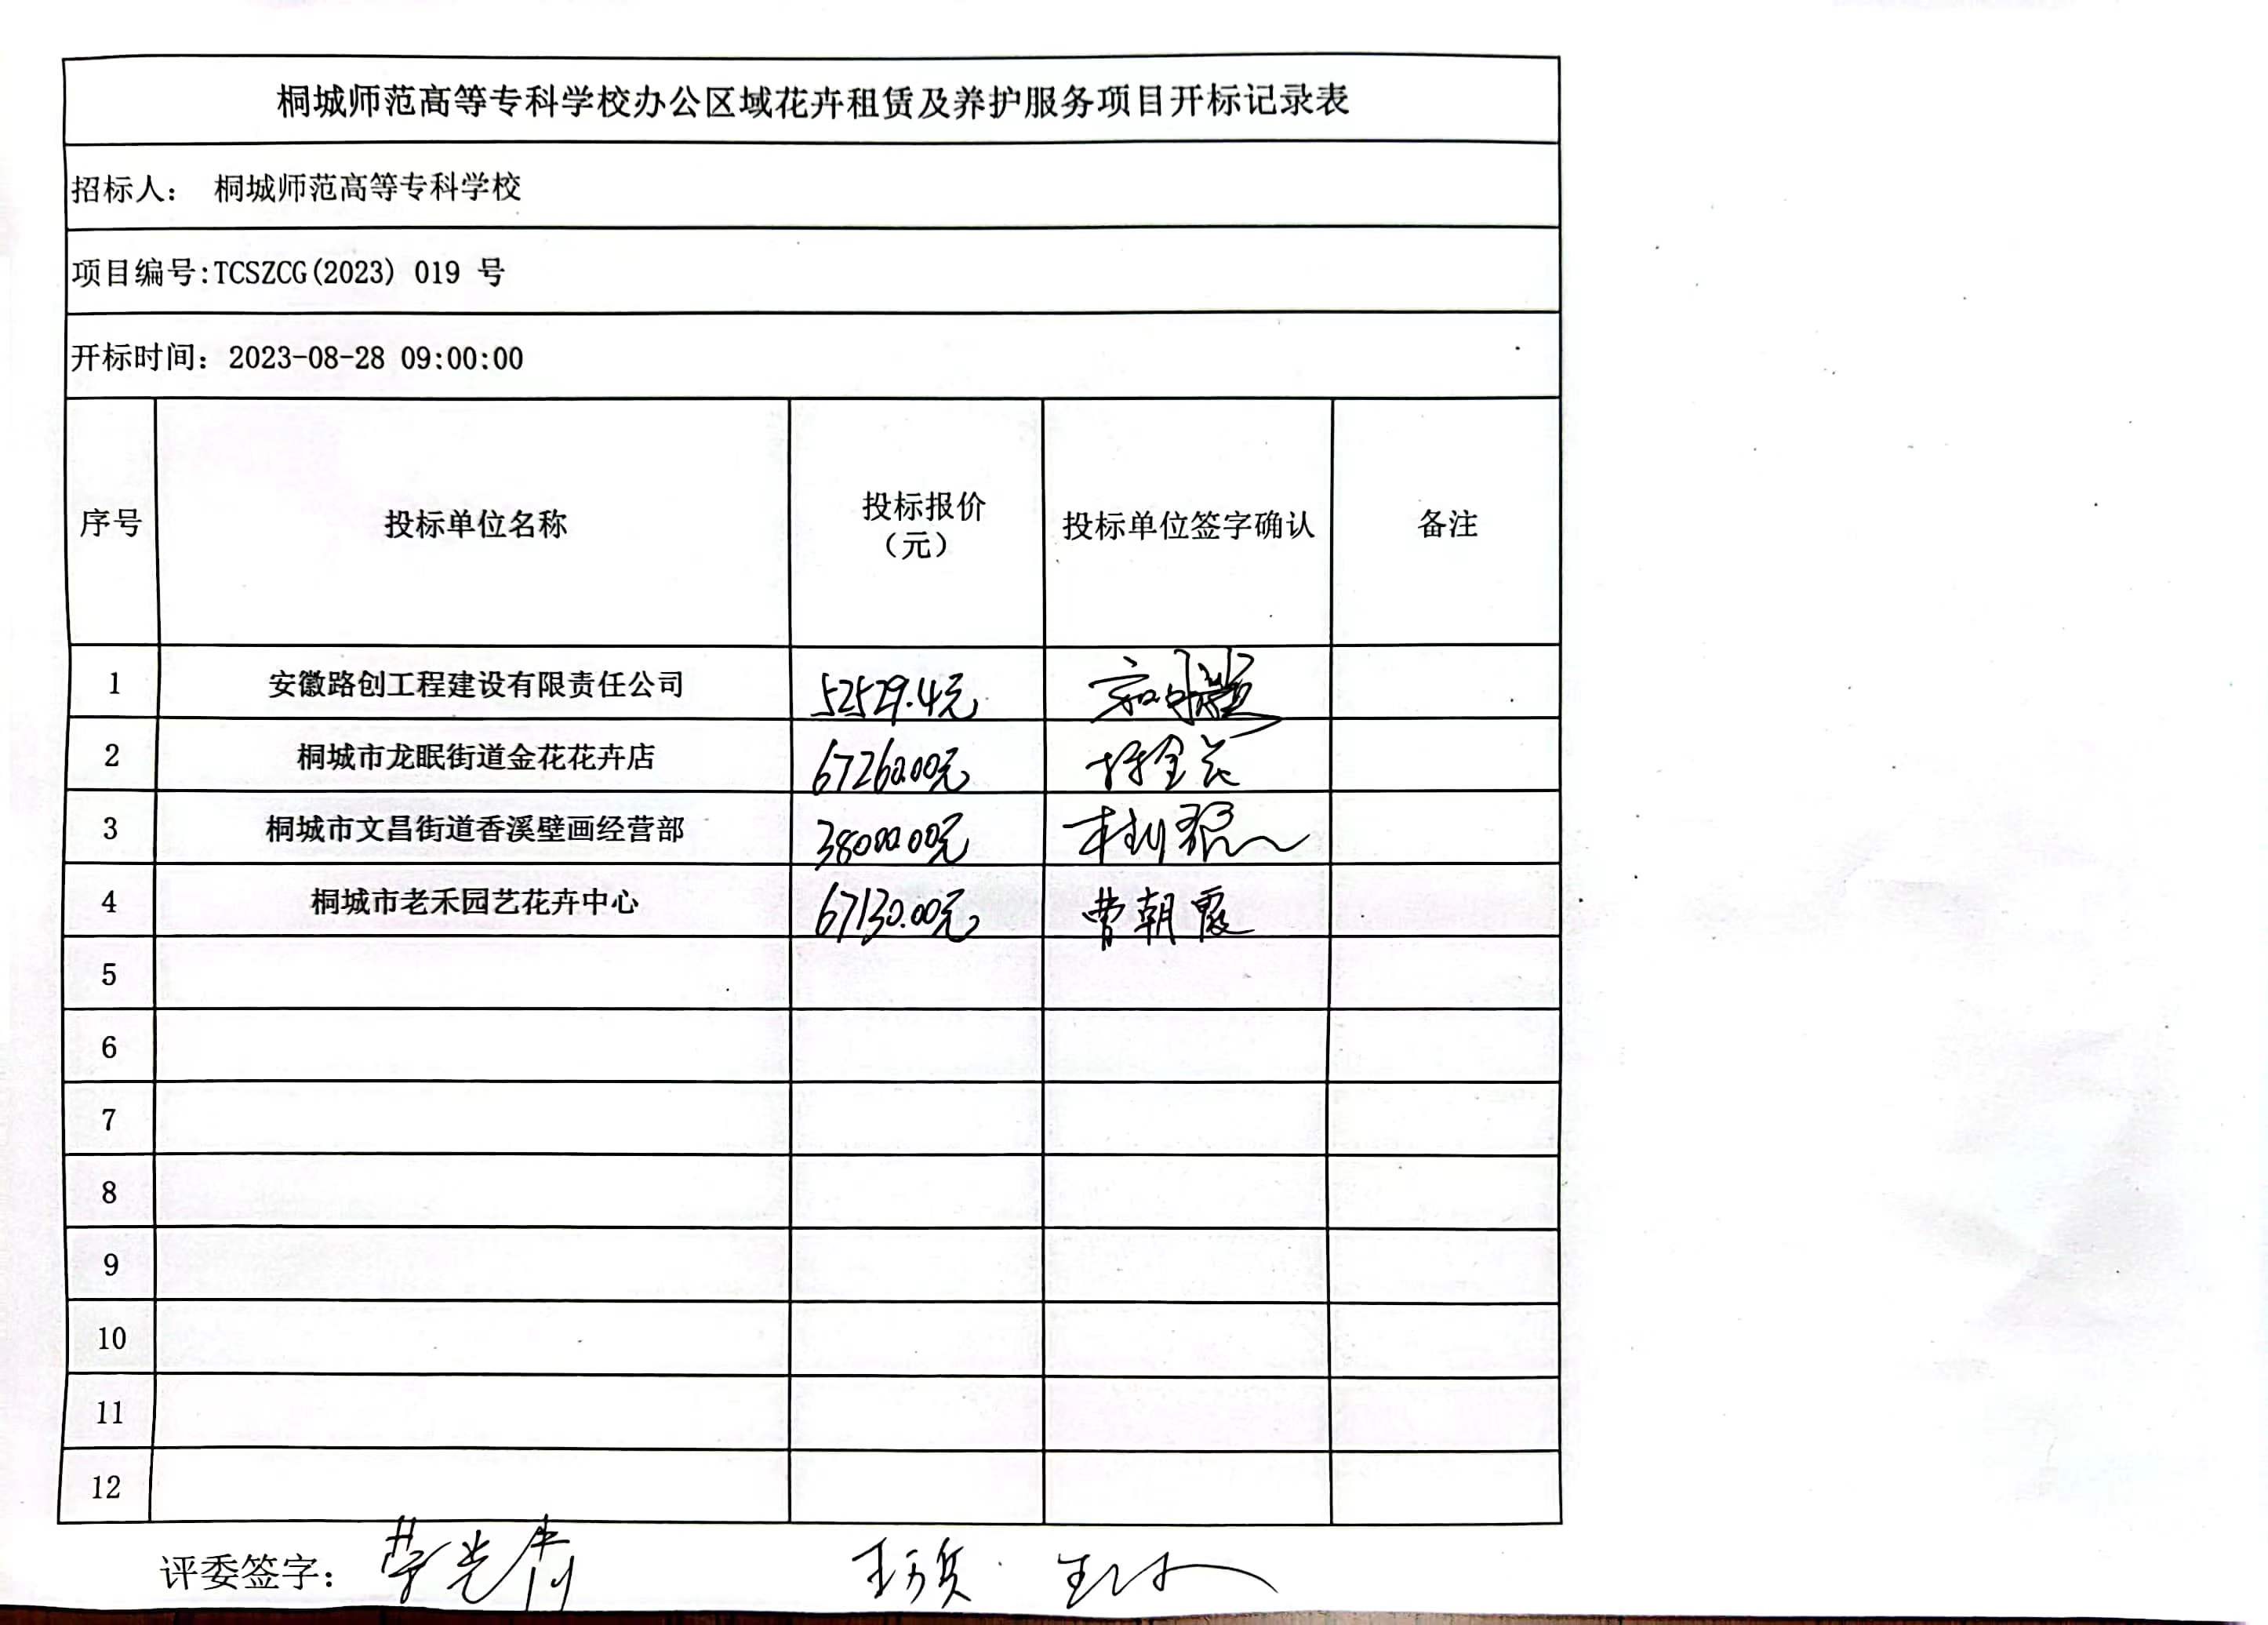 桐城师范高等专科学校办公区域花卉租赁及养护服务项目开标记录表
招标人： 桐城师范高等专科学校
项目编号:TCSZCG(2023) 019 号
开标时间：2023-08-28 09:00:00
序号 投标单位名称 投标报价（元） 投标单位签字确认 备注
1 安徽路创工程建设有限责任公司 52529.4元
2 桐城市龙眠街道金花花卉店 67260.00元
3 桐城市文昌街道香溪壁画经营部 38000.00元
4 桐城市老禾园艺花卉中心 67130.00元 曹朝霞
5
6
7
8
9
10
11
12
评委签字：